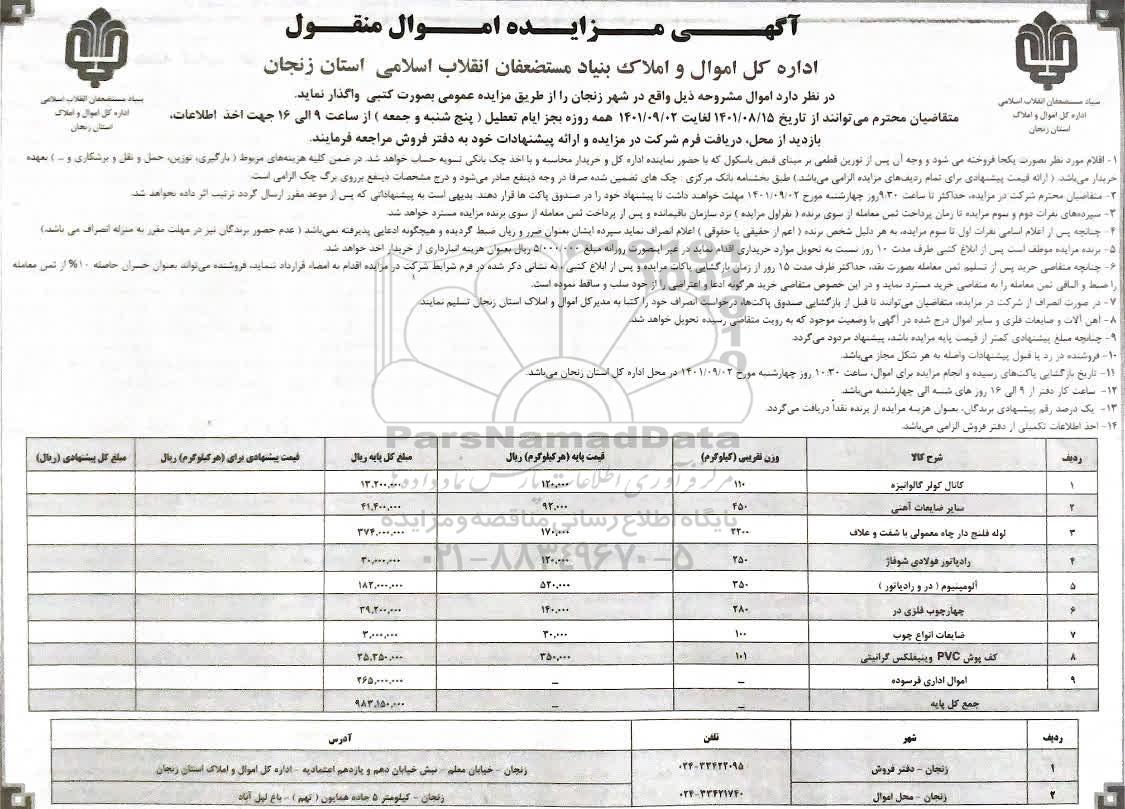 آگهـی مـزایـده امـوال منقـول
اداره کل اموال و املاک بنیاد مستضعفان انقلاب اسلامی استان زنجان
بنیاد مستضعفان انقلاب اسلامی
اداره کل اموال و املاک
استان زنجان
بنیاد مستضعفان انقلاب اسلامی
اداره کل اموال و املاک
استان زنجان
در نظر دارد اموال مشروحه ذیل واقع در شهر زنجان را از طریق مزایده عمومی بصورت کتبی واگذار نماید.
متقاضیان محترم می‌توانند از تاریخ ۱۴۰۱/۰۸/۱۵ لغایت ۱۴۰۱/۰۹/۰۲ همه روزه بجز ایام تعطیل ( پنج شنبه و جمعه ) از ساعت ۹ الی ۱۶ جهت اخذ اطلاعات،
بازدید از محل، دریافت فرم شرکت در مزایده و ارائه پیشنهادات خود به دفتر فروش مراجعه فرمایند.
۱- اقلام مورد نظر بصورت یکجا فروخته می شود و وجه آن پس از توزین قطعی بر مبنای قبض باسکول که با حضور نماینده اداره کل و خریدار محاسبه و با اخذ چک بانکی تسویه حساب خواهد شد. در ضمن کلیه هزینه‌های مربوط ( بارگیری، توزین، حمل و نقل و برشکاری و ... ) بعهده
خریدار می‌باشد. ( ارائه قیمت پیشنهادی برای تمام ردیف‌های مزایده الزامی می‌باشد.) طبق بخشنامه بانک مرکزی : چک های تضمین شده صرفا در وجه ذینفع صادر می‌شود و درج مشخصات ذینفع برروی برگ چک الزامی است.
۲- متقاضیان محترم شرکت در مزایده، حداکثر تا ساعت ۹:۳۰ روز چهارشنبه مورخ ۱۴۰۱/۰۹/۰۲ مهلت خواهند داشت تا پیشنهاد خود را در صندوق پاکت ها قرار دهند. بدیهی است به پیشنهاداتی که پس از موعد مقرر ارسال گردد ترتیب اثر داده نخواهد شد.
۳- سپرده‌های نفرات دوم و سوم مزایده تا زمان پرداخت ثمن معامله از سوی برنده ( نفراول مزایده ) نزد سازمان باقیمانده و پس از پرداخت ثمن معامله از سوی برنده مزایده مسترد خواهد شد.
۴- چنانچه پس از اعلام اسامی نفرات اول تا سوم مزایده، به هر دلیل شخص برنده ( اعم از حقیقی یا حقوقی ) اعلام انصراف نماید سپرده ایشان بعنوان ضرر و زیان ضبط گردیده و هیچگونه ادعایی پذیرفته نمی‌باشد ( عدم حضور برندگان نیز در مهلت مقرر به منزله انصراف می باشد.)
۵- برنده مزایده موظف است پس از ابلاغ کتبی ظرف مدت ۱۰ روز نسبت به تحویل موارد خریداری اقدام نماید. در غیر اینصورت روزانه مبلغ ۵/۰۰۰/۰۰۰ ریال بعنوان هزینه انبارداری از خریدار اخذ خواهد شد.
۶- چنانچه متقاضی خرید پس از تسلیم ثمن معامله بصورت نقد، حداکثر ظرف مدت ۱۵ روز از زمان بازگشایی پاکات مزایده و پس از ابلاغ کتبی ، به نشانی ذکر شده در فرم شرایط شرکت در مزایده اقدام به امضاء قرارداد ننماید، فروشنده می‌تواند بعنوان خسران حاصله ۱۰% از ثمن معامله
را ضبط و الباقی ثمن معامله را به متقاضی خرید مسترد نماید و در این خصوص متقاضی خرید هرگونه ادعا و اعتراضی را از خود سلب و ساقط نموده است.
۷- در صورت انصراف از شرکت در مزایده، متقاضیان می‌توانند تا قبل از بازگشایی صندوق پاکت‌ها، درخواست انصراف خود را کتبا به مدیرکل اموال و املاک استان زنجان تسلیم نمایند.
۸- آهن آلات و ضایعات فلزی و سایر اموال درج شده در آگهی با وضعیت موجود که به رویت متقاضی رسیده تحویل خواهد شد.
۹- چنانچه مبلغ پیشنهادی کمتر از قیمت پایه مزایده باشد، پیشنهاد مردود می‌گردد.
۱۰- فروشنده در رد یا قبول پیشنهادات واصله به هر شکل مجاز می‌باشد.
۱۱- تاریخ بازگشایی پاکت‌های رسیده و انجام مزایده برای اموال، ساعت ۱۰:۳۰ روز چهارشنبه مورخ ۱۴۰۱/۰۹/۰۲ در محل اداره کل استان زنجان می‌باشد.
۱۲- ساعت کار دفتر از ۹ الی ۱۶ روز های شنبه الی چهارشنبه می‌باشد.
۱۳- یک درصد رقم پیشنهادی برندگان، بعنوان هزینه مزایده از برنده نقداً دریافت می‌گردد.
۱۴- اخذ اطلاعات تکمیلی از دفتر فروش الزامی می‌باشد.
ParsNamadData
مرکز فرآوری اطلاعات پارس نماد داده ها
پایگاه اطلاع رسانی مناقصه و مزایده
۰۲۱-۸۸۳۴۹۶۷۰-۵
ردیف شرح کالا وزن تقریبی (کیلوگرم) قیمت پایه (هرکیلوگرم) ریال مبلغ کل پایه ریال قیمت پیشنهادی برای (هرکیلوگرم) ریال مبلغ کل پیشنهادی (ریال)
۱ کانال کولر گالوانیزه ۱۱۰ ۱۲۰,۰۰۰ ۱۳,۲۰۰,۰۰۰
۲ سایر ضایعات آهنی ۴۵۰ ۹۲,۰۰۰ ۴۱,۴۰۰,۰۰۰
۳ لوله فلنج دار چاه معمولی با شفت و غلاف ۲۲۰۰ ۱۷۰,۰۰۰ ۳۷۴,۰۰۰,۰۰۰
۴ رادیاتور فولادی شوفاژ ۲۵۰ ۱۲۰,۰۰۰ ۳۰,۰۰۰,۰۰۰
۵ آلومینیوم ( در و رادیاتور ) ۳۵۰ ۵۲۰,۰۰۰ ۱۸۲,۰۰۰,۰۰۰
۶ چهارچوب فلزی در ۲۸۰ ۱۴۰,۰۰۰ ۳۹,۲۰۰,۰۰۰
۷ ضایعات انواع چوب ۱۰۰ ۳۰,۰۰۰ ۳,۰۰۰,۰۰۰
۸ کف پوش PVC وینیفلکس گرانیتی ۱۰۱ ۳۵۰,۰۰۰ ۳۵,۳۵۰,۰۰۰
۹ اموال اداری فرسوده – – ۲۶۵,۰۰۰,۰۰۰
جمع کل پایه – – ۹۸۳,۱۵۰,۰۰۰
ردیف شهر تلفن آدرس
۱ زنجان - دفتر فروش ۰۲۴-۳۳۴۲۲۰۹۵ زنجان - خیابان معلم - نبش خیابان دهم و یازدهم اعتمادیه - اداره کل اموال و املاک استان زنجان
۲ زنجان - محل اموال ۰۲۴-۳۳۴۲۱۷۴۰ زنجان - کیلومتر ۵ جاده همایون ( تهم ) - باغ لیل آباد